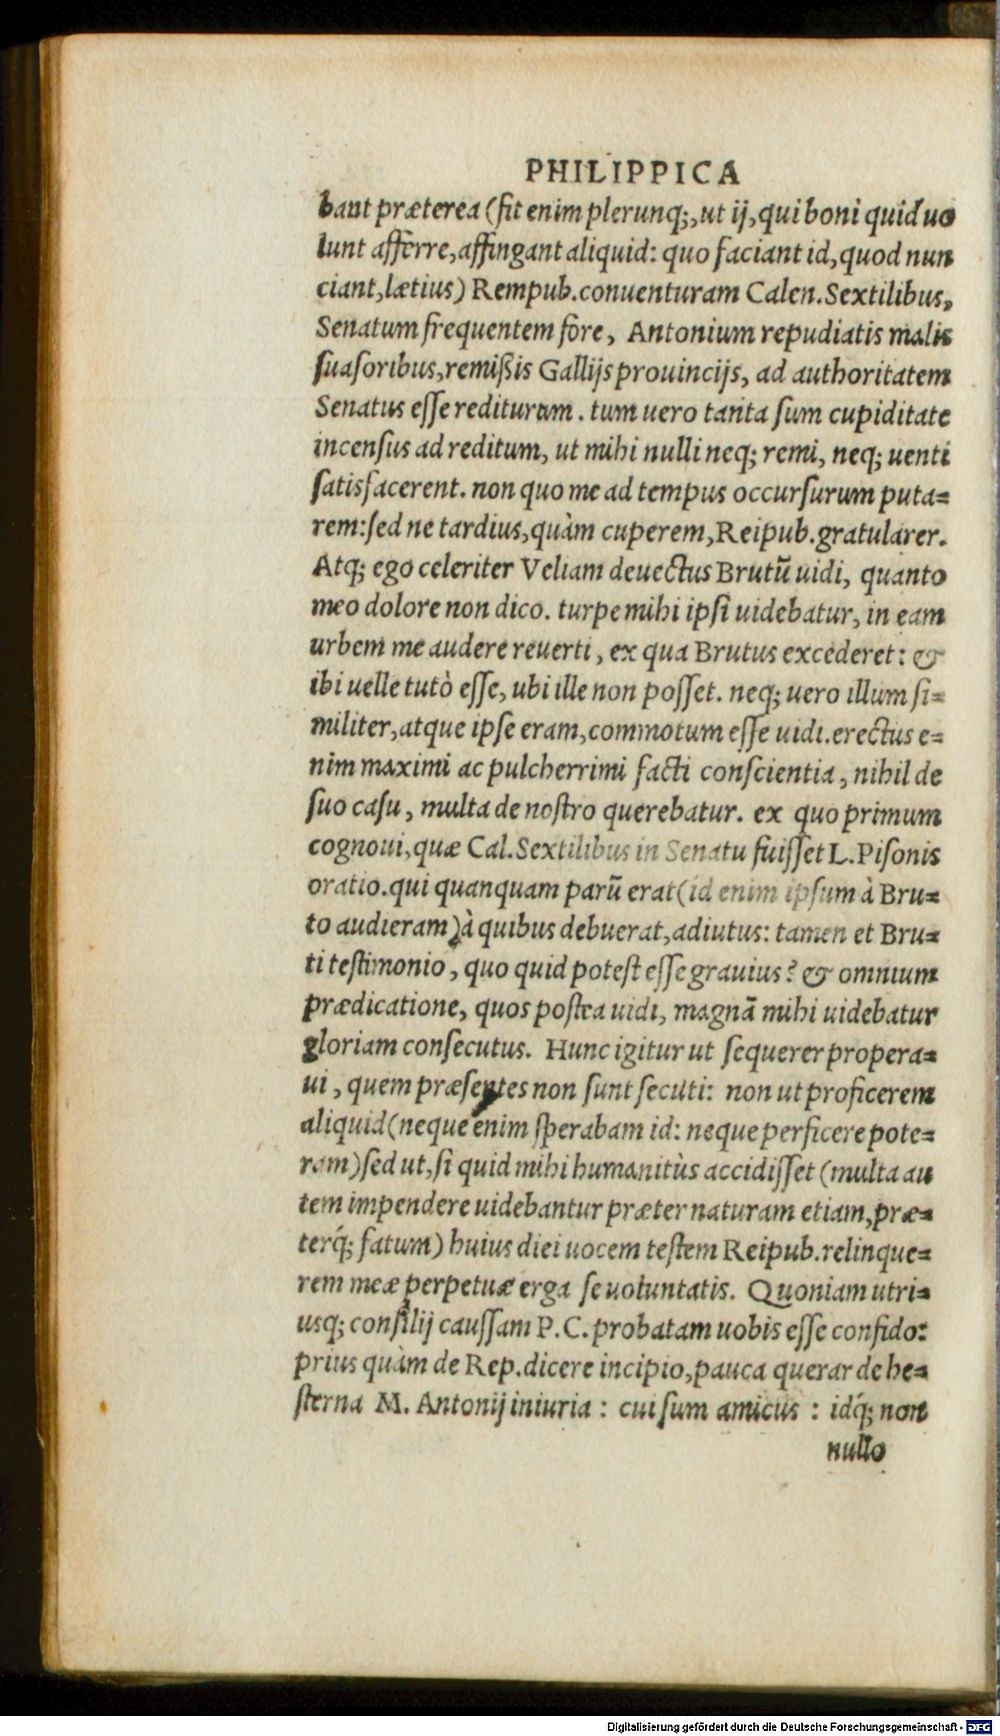 PHILIPPICA
bant præterea (fit enim plerunq;, ut ij, qui boni quid uo
lunt afferre, affingant aliquid: quo faciant id, quod nun
ciant, lætius) Rempub. conuenturam Calen. Sextilibus,
Senatum frequentem fore, Antonium repudiatis malis
suasoribus, remißis Gallijs prouincijs, ad authoritatem
Senatus esse rediturum. tum uero tanta sum cupiditate
incensus ad reditum, ut mihi nulli neq; remi, neq; uenti
satisfacerent. non quo me ad tempus occursurum puta=
rem: sed ne tardius, quàm cuperem, Reipub. gratularer.
Atq; ego celeriter Veliam deuectus Brutū uidi, quanto
meo dolore non dico. turpe mihi ipsi uidebatur, in eam
urbem me audere reuerti, ex qua Brutus excederet: &
ibi uelle tutò esse, ubi ille non posset. neq; uero illum si=
militer, atque ipse eram, commotum esse uidi. erectus e=
nim maximi ac pulcherrimi facti conscientia, nihil de
suo casu, multa de nostro querebatur. ex quo primum
cognoui, quæ Cal. Sextilibus in Senatu fuisset L. Pisonis
oratio. qui quanquam parū erat (id enim ipsum à Bru=
to audieram) à quibus debuerat, adiutus: tamen et Bru=
ti testimonio, quo quid potest esse grauius? & omnium
prædicatione, quos postea uidi, magnā mihi uidebatur
gloriam consecutus. Hunc igitur ut sequerer propera=
ui, quem præsentes non sunt secuti: non ut proficerem
aliquid (neque enim sperabam id: neque perficere pote=
ram) sed ut, si quid mihi humanitùs accidisset (multa au
tem impendere uidebantur præter naturam etiam, præ=
terq́; fatum) huius diei uocem testem Reipub. relinque=
rem meæ perpetuæ erga se uoluntatis. Quoniam utri=
usq; consilij caussam P. C. probatam uobis esse confido:
prius quàm de Rep. dicere incipio, pauca querar de he=
sterna M. Antonij iniuria: cui sum amicus: idq́; non
nullo
Digitalisierung gefördert durch die Deutsche Forschungsgemeinschaft - DFG